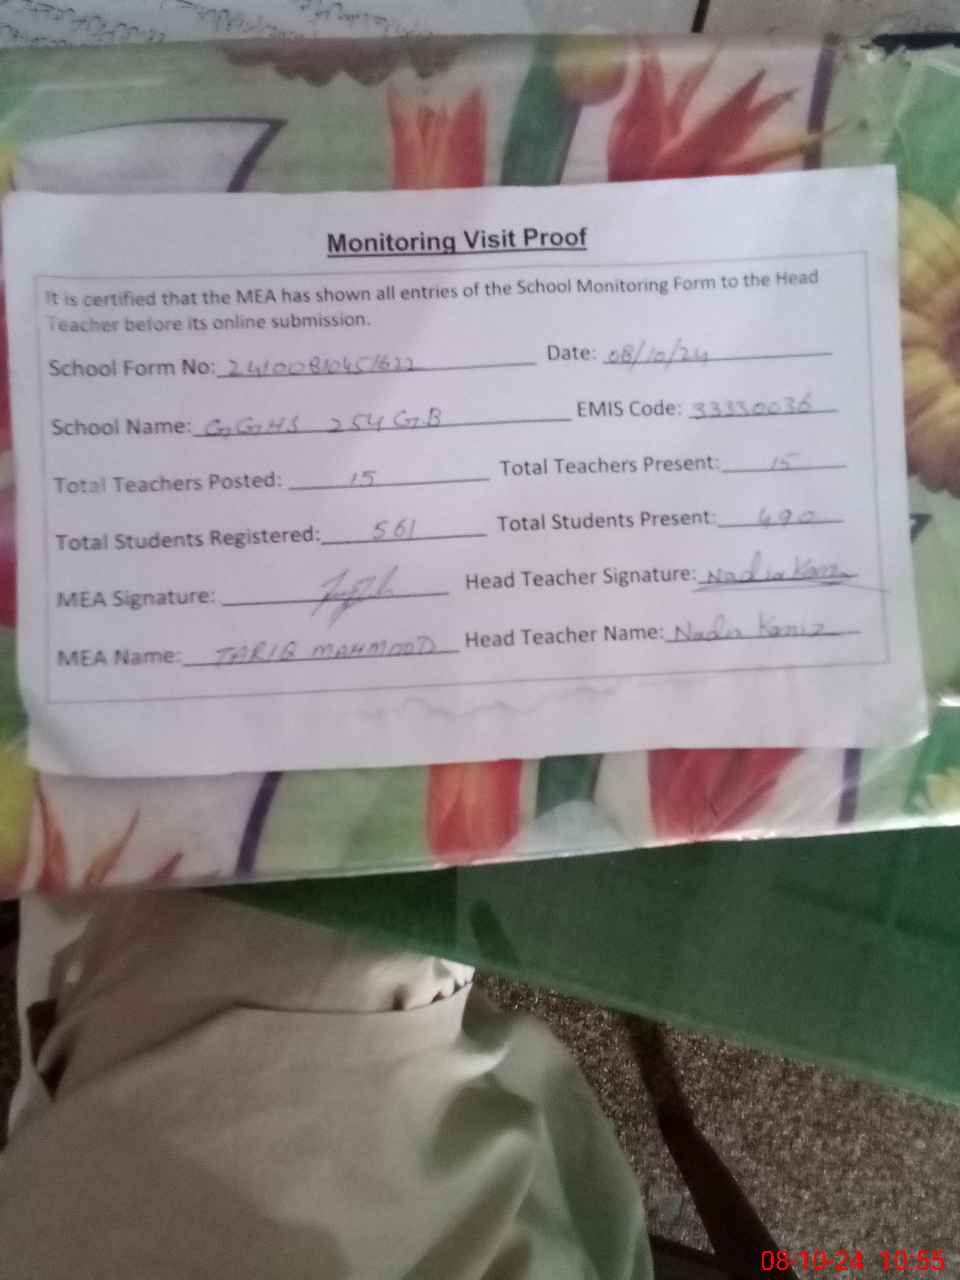 Monitoring Visit Proof
It is certified that the MEA has shown all entries of the School Monitoring Form to the Head
Teacher before its online submission.
School Form No: Date: 08/10/24
School Name: GGHS 254 GB EMIS Code: 33330036
Total Teachers Posted: 15 Total Teachers Present: 15
Total Students Registered: 561 Total Students Present: 490
MEA Signature: Head Teacher Signature: Nadia
MEA Name: TARIQ MAHMOOD Head Teacher Name: Kaniz
08-10-24 10:55